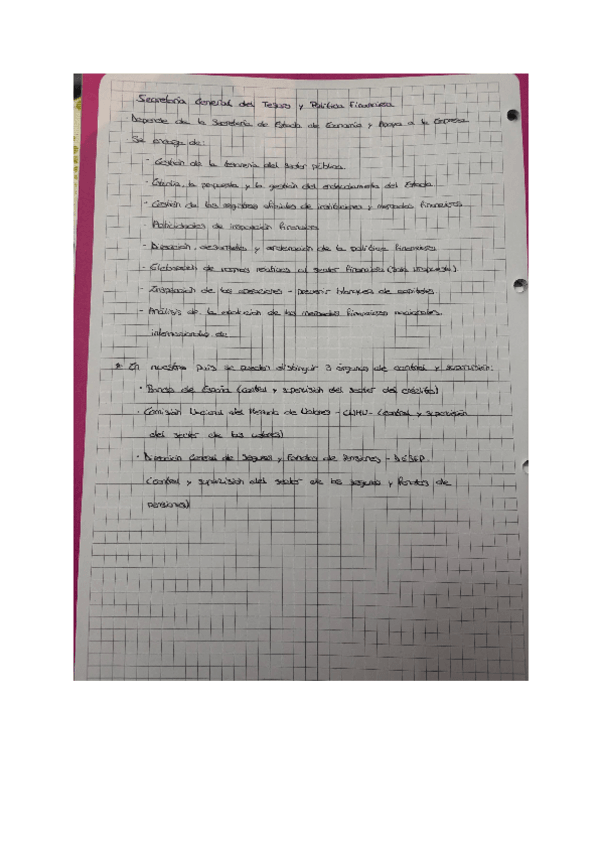 Secretaría General del Tesoro y Política Financiera
Depende de la Secretaría de Estado de Economía y Apoyo a la Empresa
Se encarga de:
- Gestión de la tesorería del sector público.
- Gestión, la propuesta y la gestión del endeudamiento del Estado
- Gestión de los registros oficiales de instituciones y mercados financieros
Autoridades de inspección financiera
- Dirección, y ordenación de la política financiera
- Elaboración de normas relativas al sector financiero
- Inspección de las operaciones - prevenir blanqueo de capitales.
- Análisis de la evolución de los mercados financieros nacionales
internacionales de
En nuestro país se pueden distinguir 3 órganos de control y supervisión:
· Banco de España (control y supervisión del sector del crédito)
· Comisión Nacional del Mercado de Valores - CNMV - (control y supervisión
del sector de los valores)
· Dirección General de Seguros y Fondos de Pensiones - DGSFP
(control y supervisión del sector de los seguros y fondos de
pensiones)